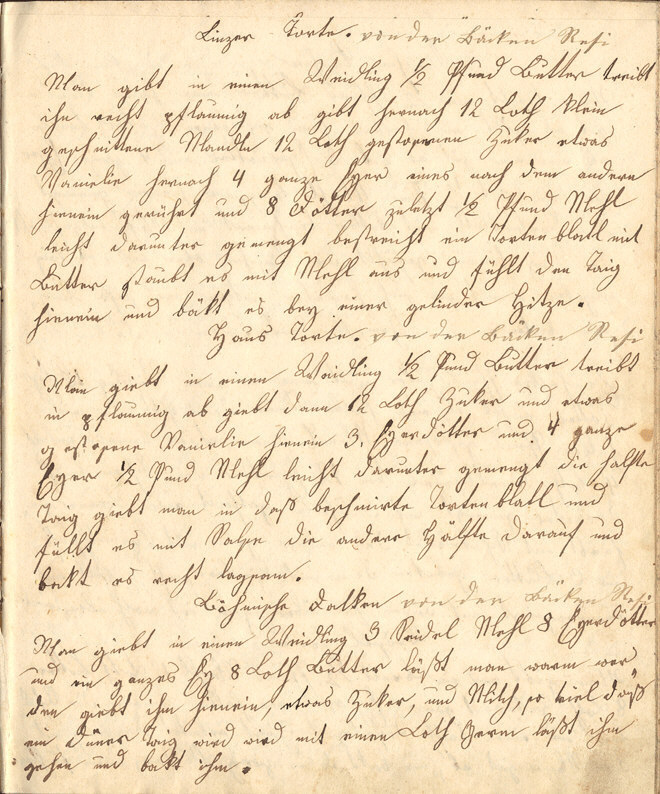 Linzer Torte. von der Bäcken Resi
Man gibt in einen Weidling 1/2 Pfund Butter treibt
ihn recht pflaumig ab gibt hernach 12 Loth klein
geschnittene Mandln 12 Loth gestossenen Zuker etwas
Vanielie hernach 4 ganze Eyer eines nach dem andern
hienein gerührt und 8 Dötter zuletzt 1/2 Pfund Mehl
leicht darunter gemengt bestreicht ein Tortenblatl mit
Butter staubt es mit Mehl aus und fühlt den Taig
hienein und bäkt es bey einer gelinden Hitze.
Haus Torte. von der Bäcken Resi
Man giebt in einen Waidling 1/2 Pfund Butter treibt
in pflaumig ab giebt dann 12 Loth Zuker und etwas
gestossene Vanielie hienein 3 Eyerdötter und 4 ganze
Eyer 1/2 Pfund Mehl leicht darunter gemengt die halfte
Taig giebt man in daß beschmirte Tortenblatl und
füllt es mit Salse die andere Hälfte darauf und
bakt es recht lagsam.
Böhmische Dalken von der Bäcken Resi
Man giebt in einen Weidling 3 Seidel Mehl 8 Eyerdötter
und ein ganzes Ey 8 Loth Butter läßt man warm wer
den giebt ihm hienein, etwas Zuker, und Milch, so viel daß
ein düner Taig wird wird mit einen Loth Germ läßt ihm
gehen und bakt ihm.